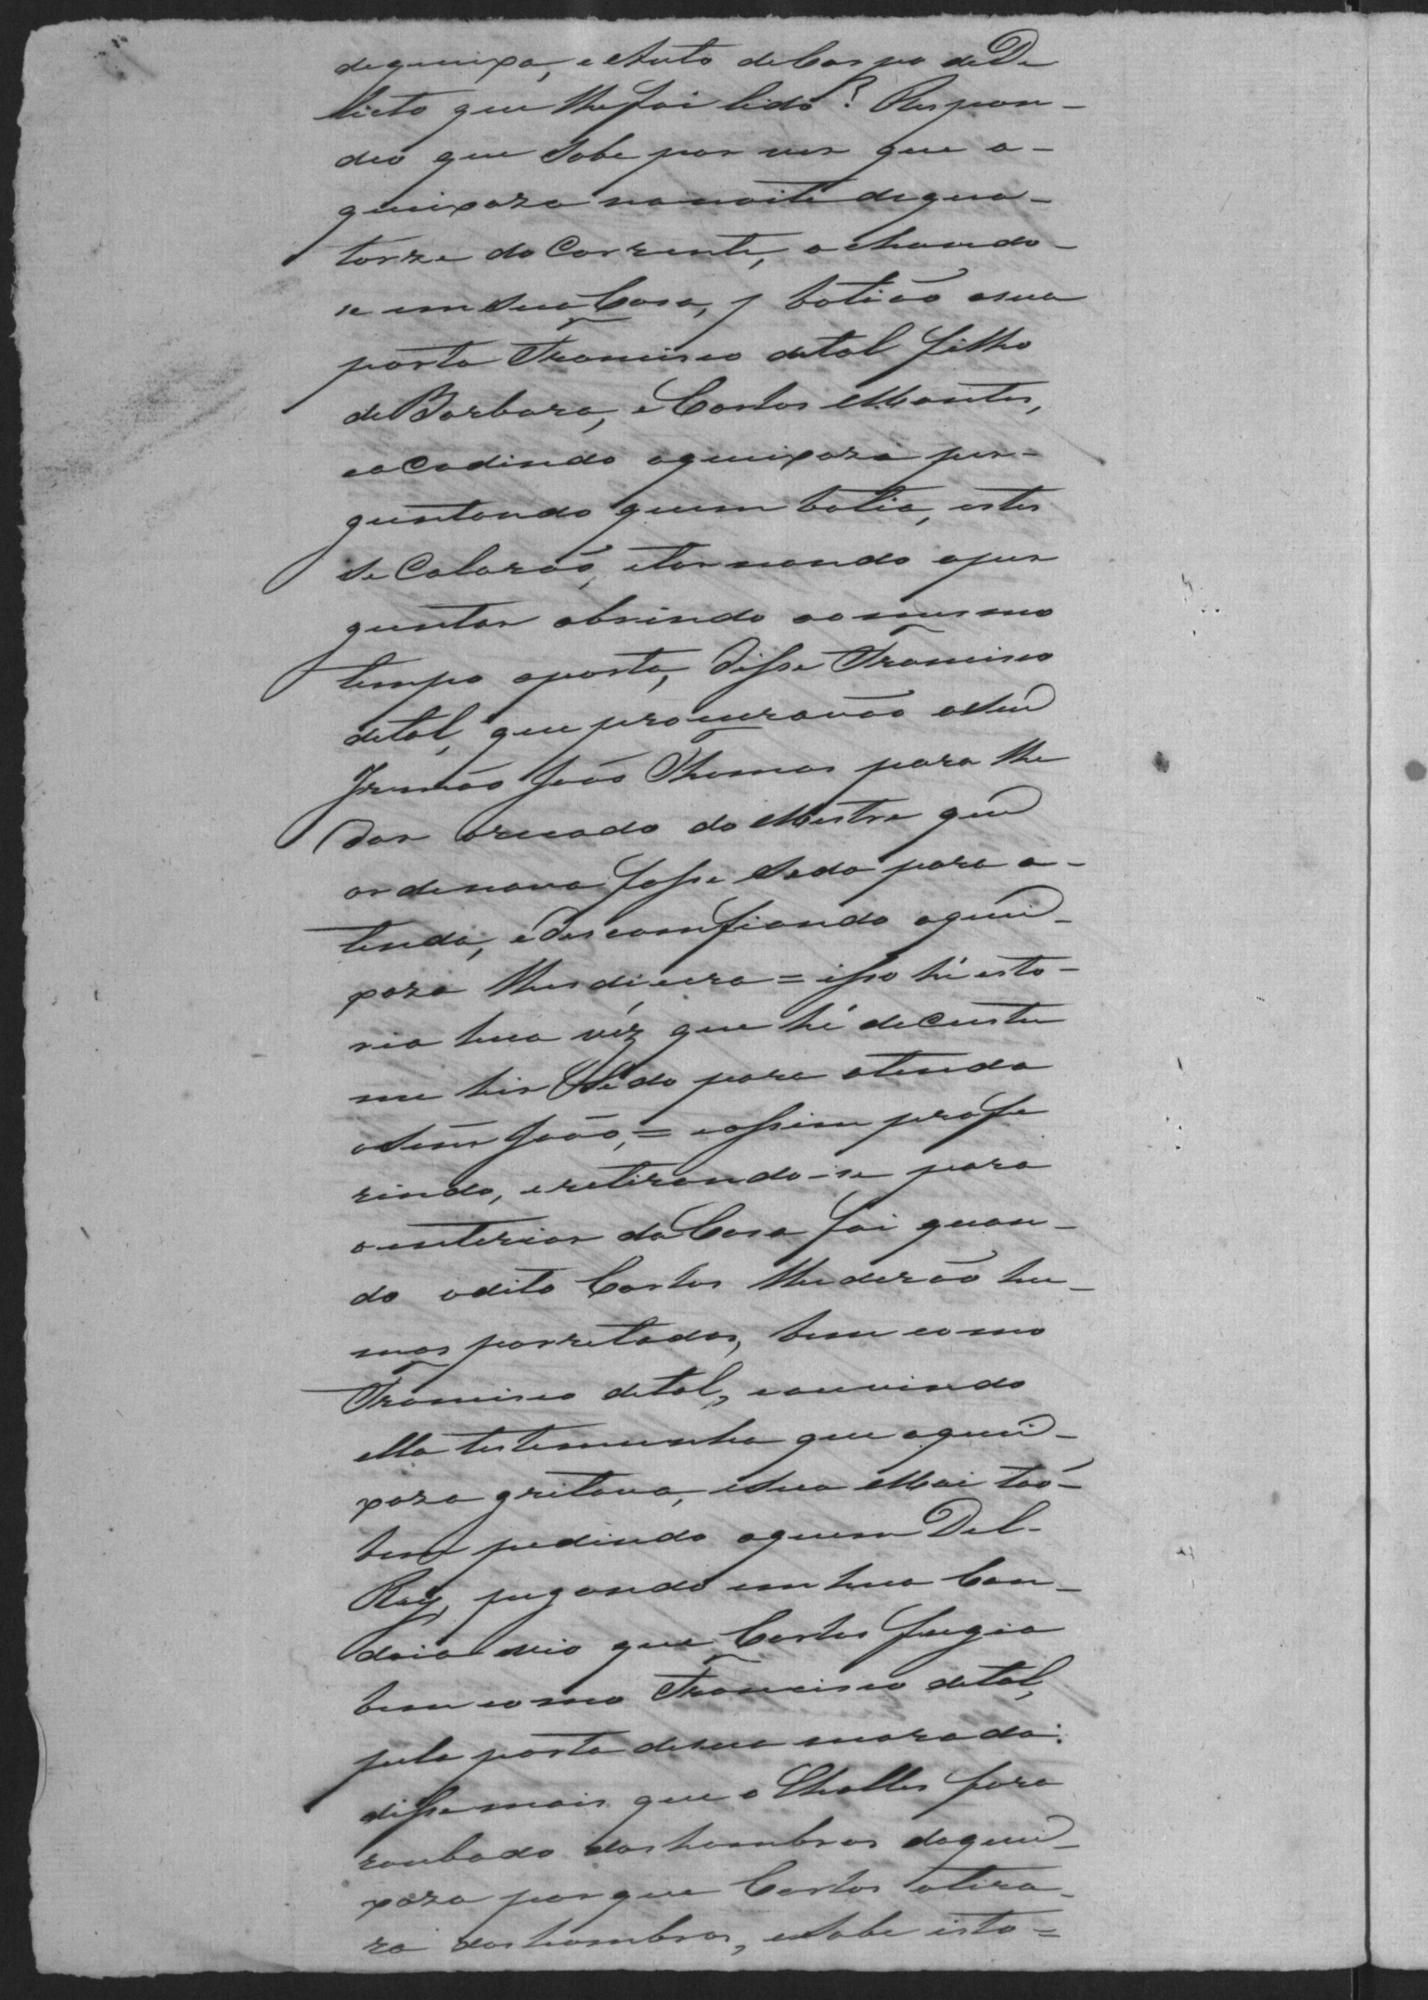 de queixa, e Auto de Corpo de De
licto que lhe foi lido? Respon-
deo que sabe por ver que a-
queixoza na noite de qua-
torze do Corrente, achando-
se em sua Casa, batião a sua
porta Francisco de tal filho
de Barbara, e Carlos Montes,
e acodindo a queixoza per-
guntando quem batia, estes
se Calarão, e tornando a per
guntar abrindo ao mesmo
tempo a porta, disse Francisco
de tal, que procuravão a seu
Irmão João Thomas para lhe
dar orecado do Mestre que
ordenava fosse sedo para a-
tenda, e desconfiando a quei-
xoza lhes dicera = isso hé isto-
ria hua véz que hé de Custu
me hir sedo para a tenda
o Senr João, = e assim profe
rindo, e retirando-se para
o interior da Casa foi quan-
do o dito Carlos lhe derão hu-
mas porretadas, bem como
Francisco de tal, e ouvindo
ella testemunha que a quei-
xoza gritava, e sua Mai tão-
bem pedindo aquem Del-
Rey, pegando em hua Can-
deia vio que Carlos fugia
bem como Francisco de tal,
pela porta de sua morada:
disse mais que o Challes fora
roubado dos hombros da quei-
xoza porque Carlos o tira-
ra dos hombros, e sabe isto=